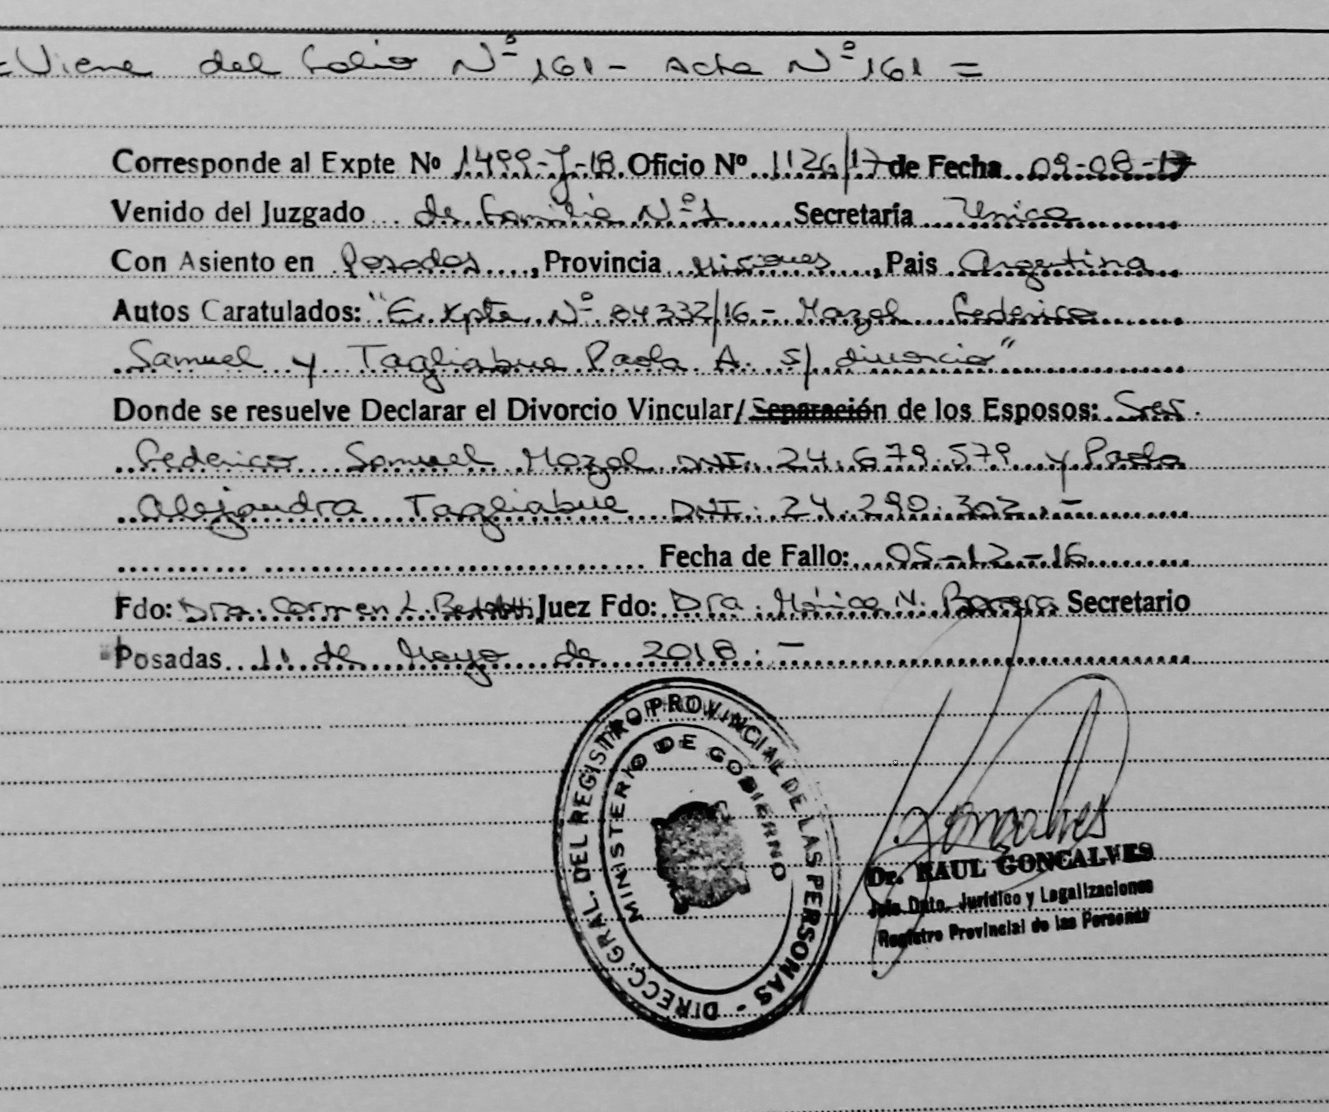 =Viene del folio Nº 161 - Acta Nº 161 =
Corresponde al Expte Nº 1499-J-18. Oficio Nº 1126/17 de Fecha 09-08-17
Venido del Juzgado de Familia Nº 1 Secretaría Unica
Con Asiento en Posadas, Provincia Misiones, Pais Argentina
Autos Caratulados: "Expte Nº 84332/16 - Mazal Federico
Samuel y Tagliabue Paola A. s/ divorcio"
Donde se resuelve Declarar el Divorcio Vincular/Separación de los Esposos: Sres.
Federico Samuel Mazal DNI. 24.679.579 y Paola
Alejandra Tagliabue DNI. 24.290.302.-
Fecha de Fallo: 05-12-16
Fdo: Dra. Carmen L. Juez Fdo: Dra. Mónica N. Barrera Secretario
Posadas 11 de Mayo de 2018.-
DIRECC. GRAL. DEL REGISTRO PROVINCIAL DE LAS PERSONAS -
MINISTERIO DE GOBIERNO
Goncalves
Dr. RAUL GONCALVES
Jefe Dpto. Jurídico y Legalizaciones
Registro Provincial de las Personas